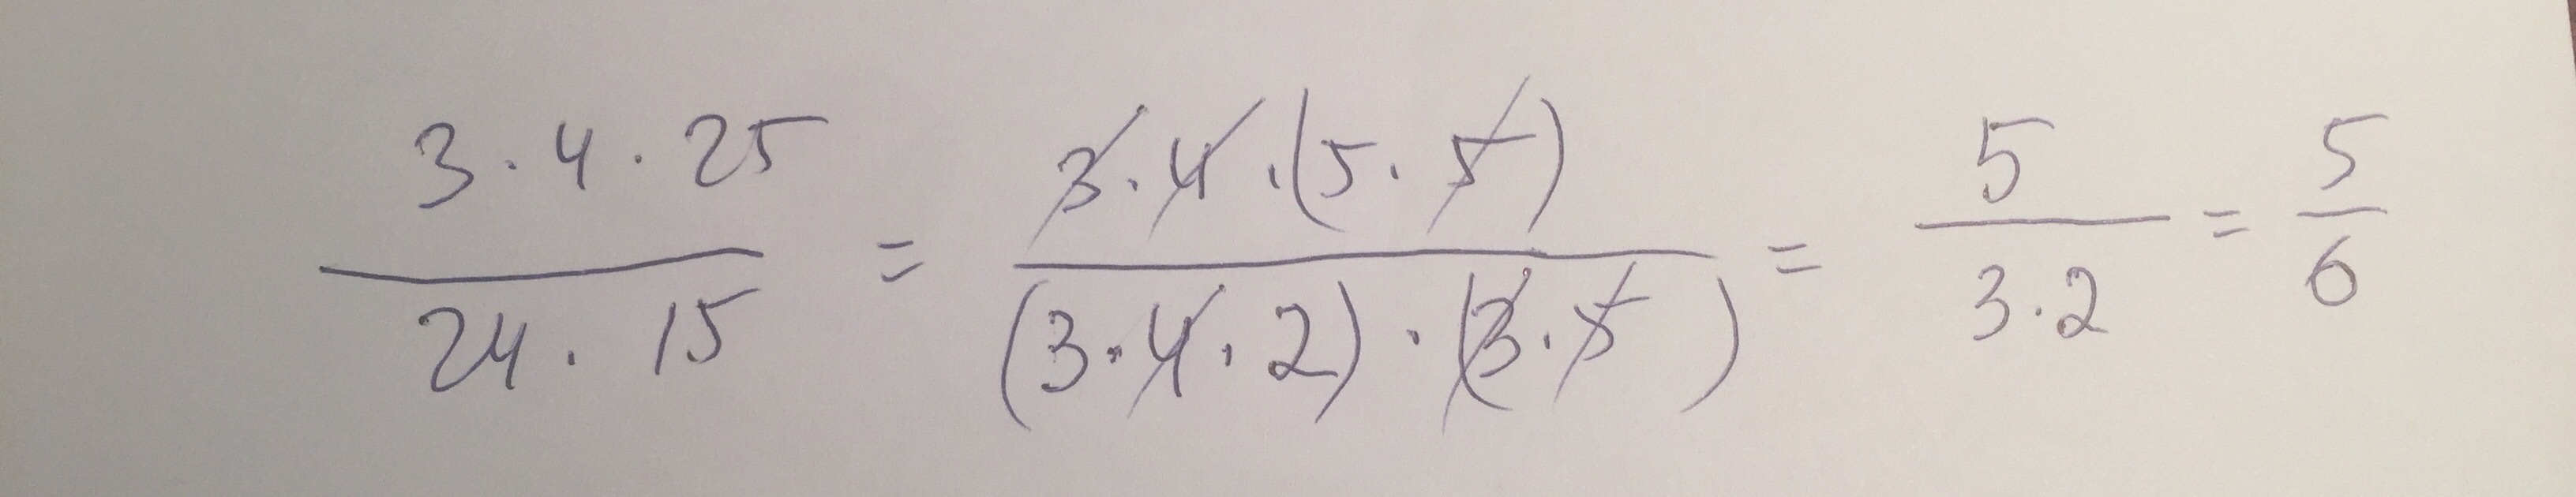 3 · 4 · 25 / 24 · 15 = 3 · 4 · (5 · 5) / (3 · 4 · 2) · (3 · 5) = 5 / 3 · 2 = 5 / 6